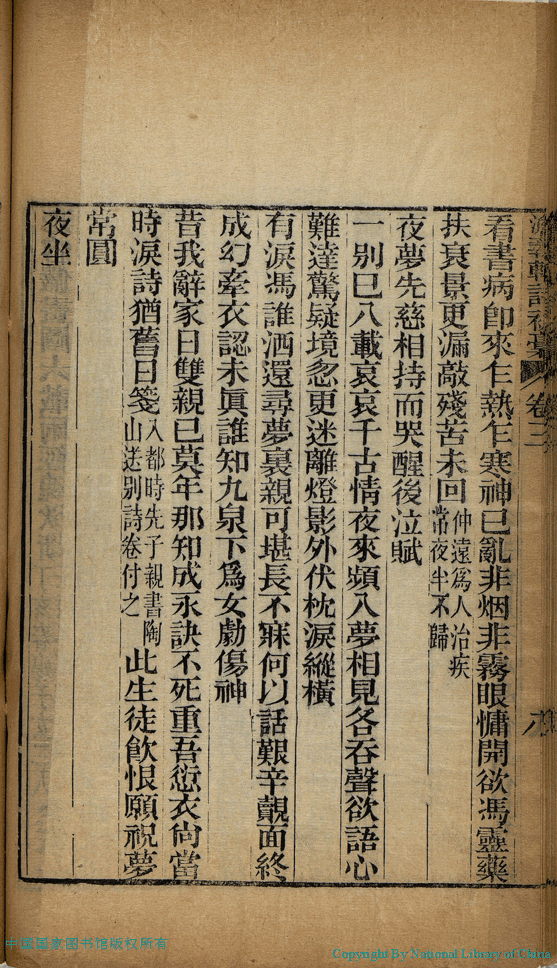 卷三
看書病卽來乍熱乍寒神已亂非烟非霧眼慵開欲馮靈藥
扶衰景更漏敲殘苦未回仲遠爲人治疾
常夜半不歸
夜夢先慈相持而哭醒後泣賦
一別已八載哀哀千古情夜來頻入夢相見各吞聲欲語心
難達驚疑境忽更迷離燈影外伏枕淚縱橫
有淚馮誰洒還尋夢裏親可堪長不寐何以話艱辛覿面終
成幻牽衣認未眞誰知九泉下爲女勸傷神
昔我辭家日雙親已莫年那知成永訣不死重吾愆衣尙當
時淚詩猶舊日箋入都時先子親書陶
山送別詩卷付之此生徒飮恨願祝夢
常圓
夜坐
八
中國國家图书馆版权所有
Copyright By National Library of China